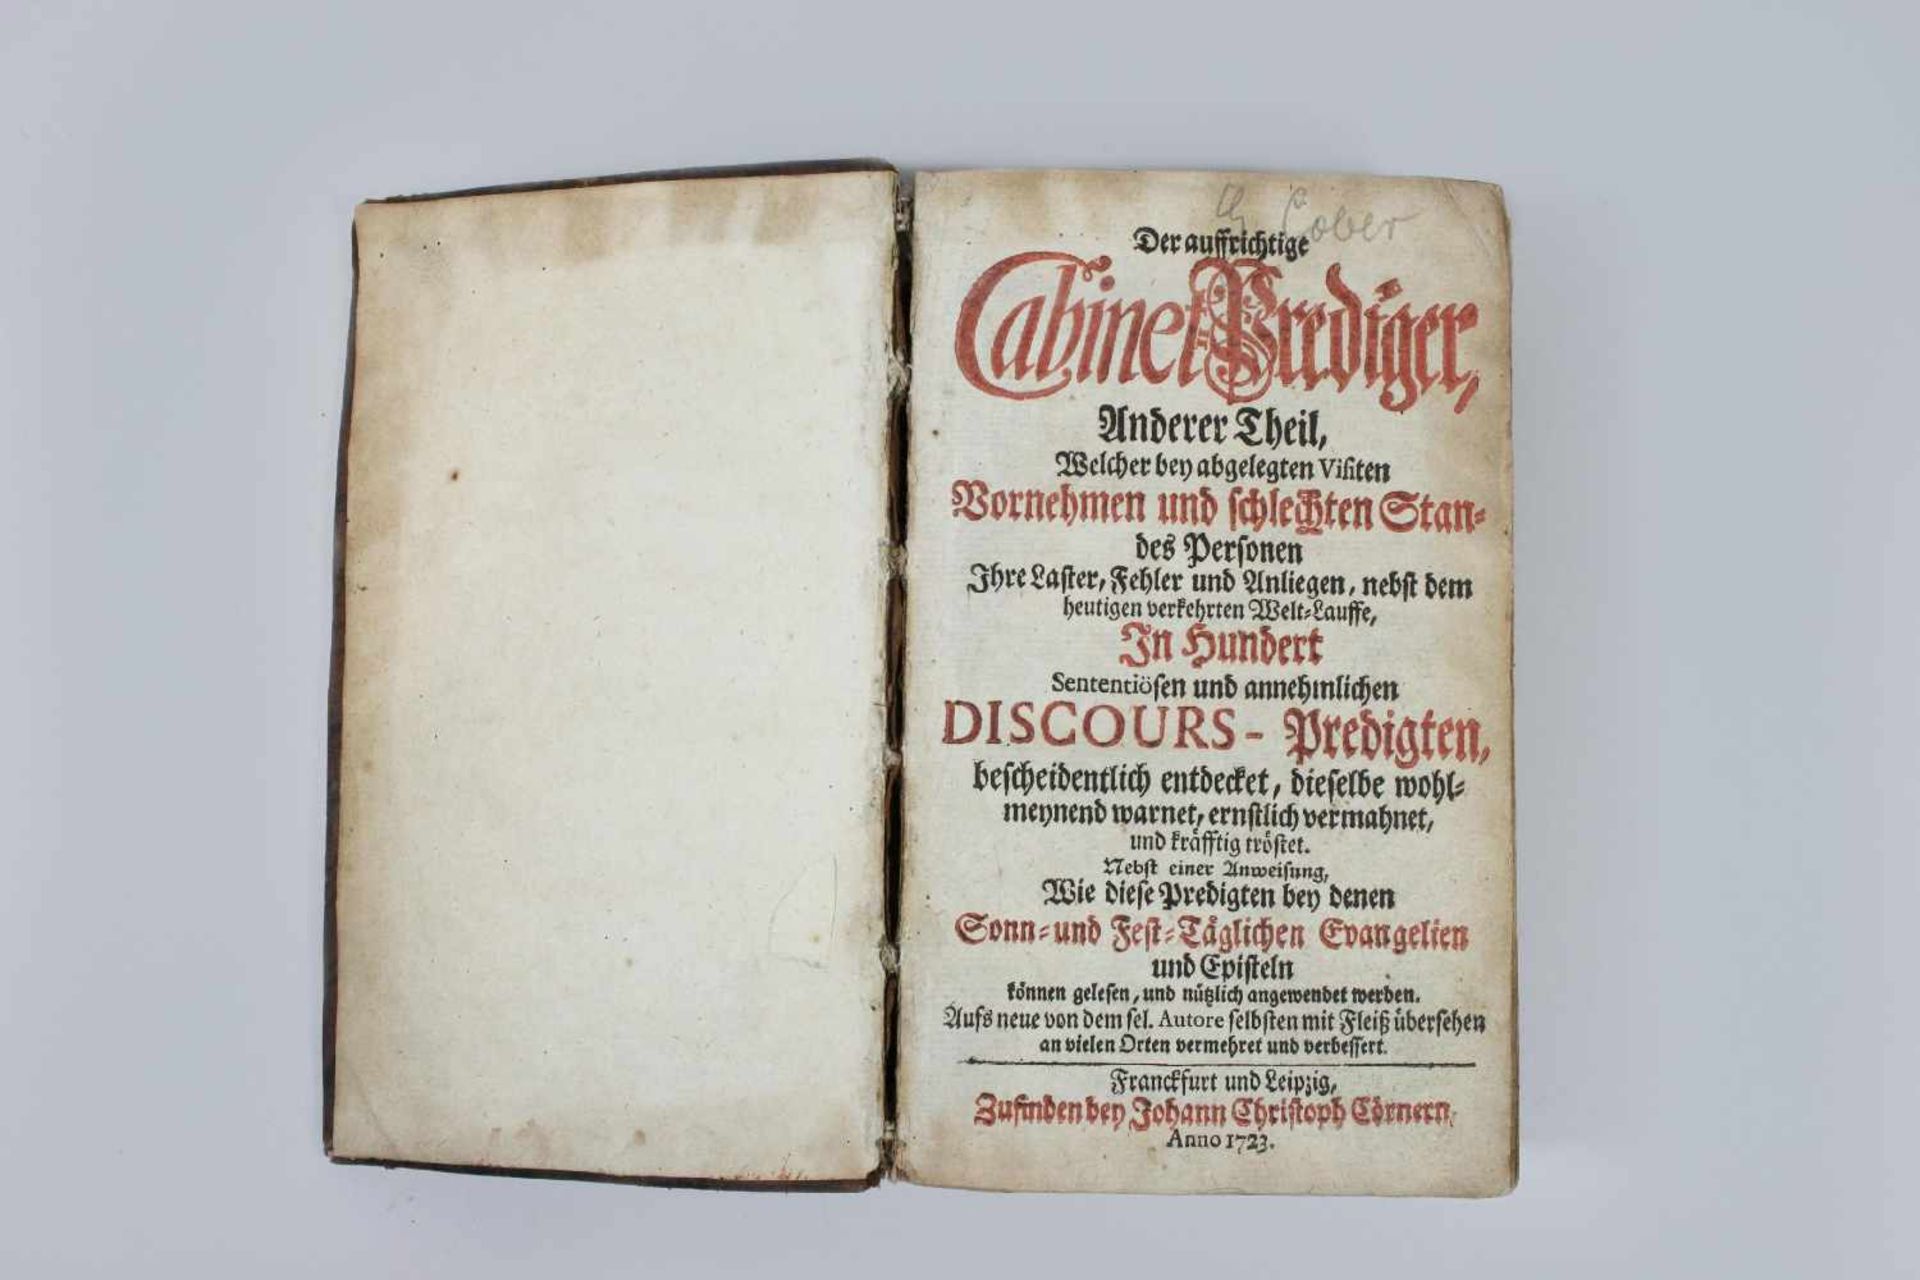 Lober
Der auffrichtige
Cabinet Prediger,
Anderer Theil,
Welcher bey abgelegten Visiten
Vornehmen und schlechten Stan-
des Personen
Ihre Laster, Fehler und Anliegen, nebst dem
heutigen verkehrten Welt-Lauffe,
In Hundert
Sententiösen und annehmlichen
DISCOURS - Predigten,
bescheidentlich entdecket, dieselbe wohl-
meynend warnet, ernstlich vermahnet,
und kräfftig tröstet.
Nebst einer Anweisung,
Wie diese Predigten bey denen
Sonn- und Fest-Täglichen Evangelien
und Episteln
können gelesen, und nützlich angewendet werden.
Aufs neue von dem sel. Autore selbsten mit Fleiß übersehen
an vielen Orten vermehret und verbessert.
Franckfurt und Leipzig,
Zufinden bey Johann Christoph Cörnern,
Anno 1723.